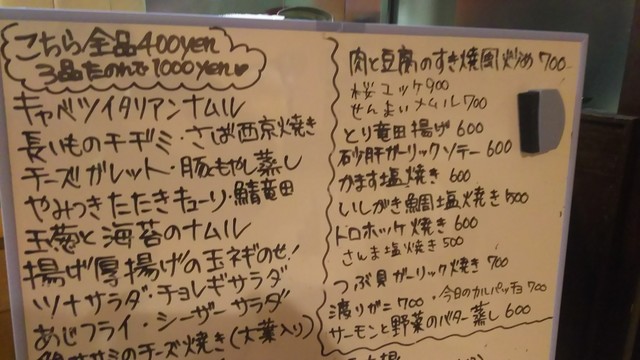 こちら全品400yen
3品たのんで1000yen♥
キャベツイタリアンナムル
長いものチヂミ・さば西京焼き
チーズガレット・豚もやし蒸し
やみつきたたきキューリ・鯖竜田
玉葱と海苔のナムル
揚げ厚揚げの玉ネギのせ!
ツナサラダ・チョレギサラダ
あじフライ・シーザーサラダ
ササミのチーズ焼き(大葉入り)
肉と豆腐のすき焼風炒め 700
桜ユッケ 900
せんまいナムル 700
とり竜田揚げ 600
砂肝ガーリックソテー 600
かます塩焼き 600
いしがき鯛塩焼き 500
トロホッケ焼き 600
さんま塩焼き 500
つぶ貝ガーリック焼き 700
渡りガニ 700 ・今日のカルパッチョ 700
サーモンと野菜のバター蒸し 600